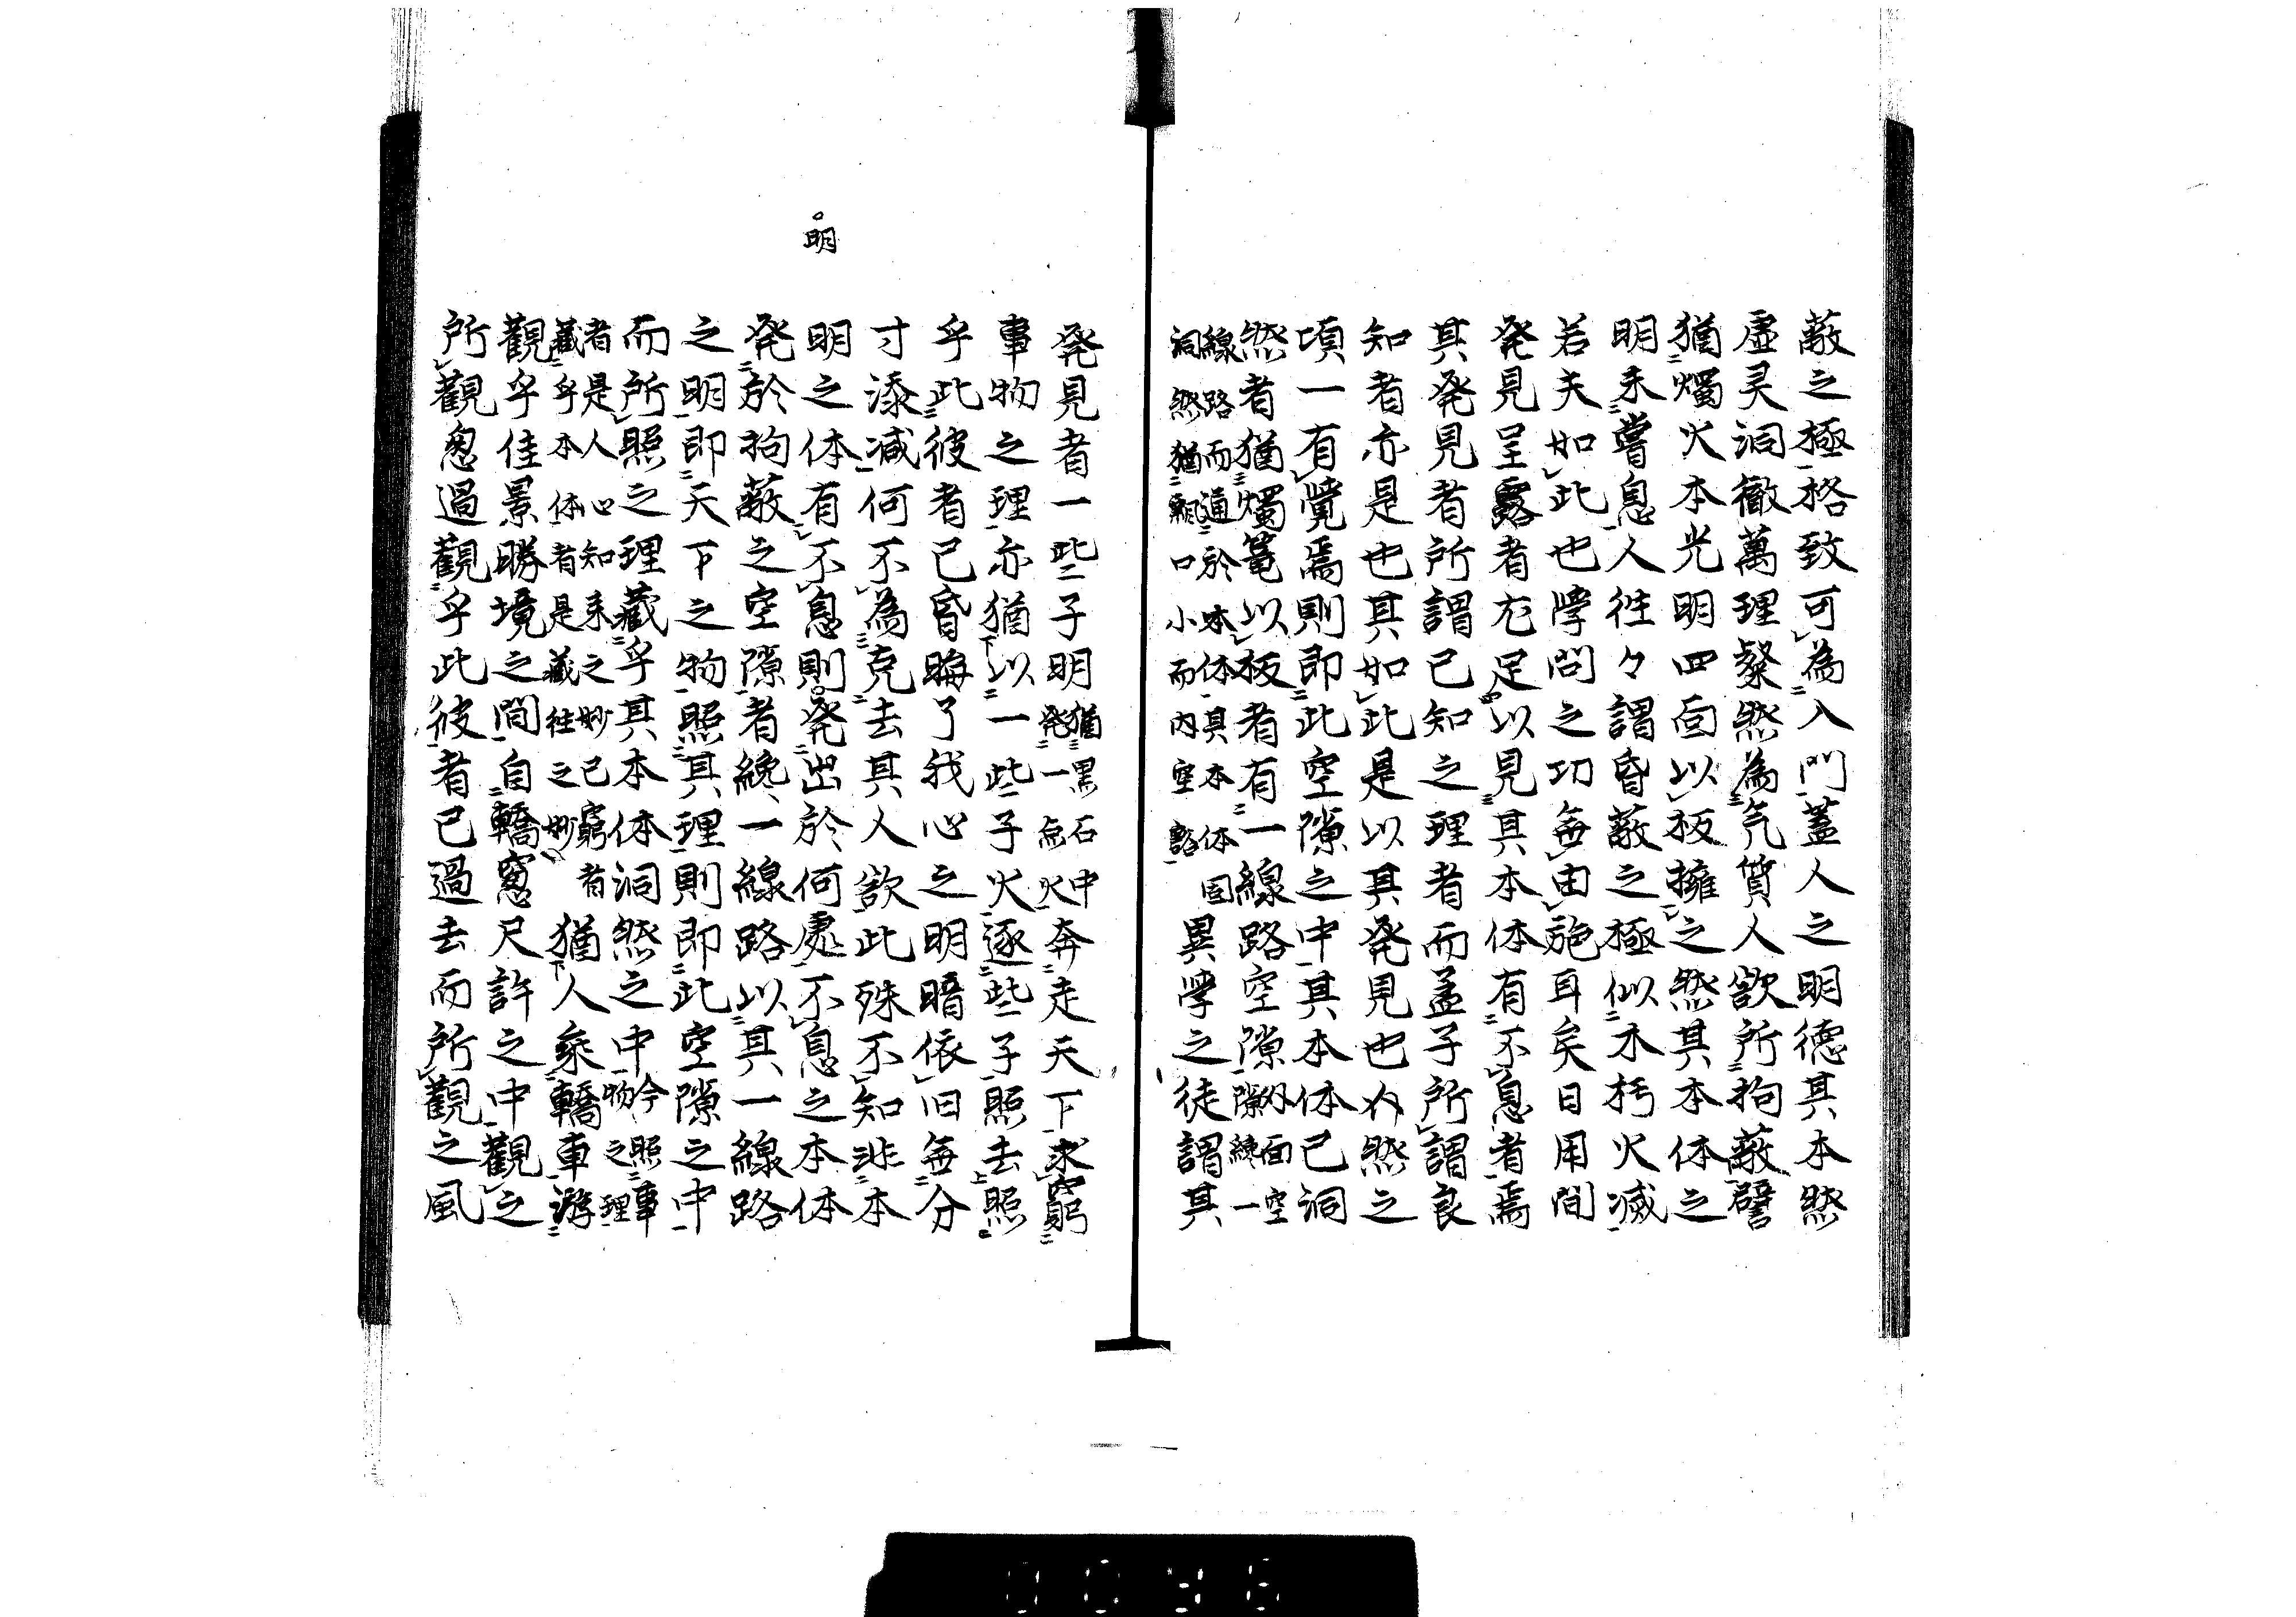 蔽之極格致可為入門蓋人之明德其本然
虛灵洞徹萬理粲然為气質人欲所拘蔽譬
猶燭火本光明四面以板擁之然其本体之
明未嘗息人往々謂昏蔽之極似木朽火滅
若夫如此也學問之功無由施耳矣日用間
発見呈露者尤足以見其本体有不息者焉
其発見者所謂已知之理者而孟子所謂良
知者亦是也其如此是以其発見也介然之
頃一有覺焉則即此空隙之中其本体已洞
然者猶燭篭以板者有一線路空隙外面空
隙纔一
線路而通於本体其本体固
洞然猶瓢口小而内空豁
異學之徒謂其
発見者一些子明猶黒石中
発一点火奔走天下求窮
事物之理亦猶以一些子火逐些子照去照
乎此彼者已昏晦了我心之明暗依旧無分
寸添减何不為克去其人欲此殊不知此本
明之体有不息則発出於何處不息之本体
明
発於拘蔽之空隙者纔一線路以其一線路
之明即天下之物照其理則即此空隙之中
而所照之理藏乎其本体洞然之中今照事
物之理
者是人心知来之妙已窮者
藏乎本体者是藏往之妙
猶人乘轎車游
觀乎佳景勝境之間自轎窓尺許之中觀之
所觀怱過觀乎此彼者已過去而所觀之風